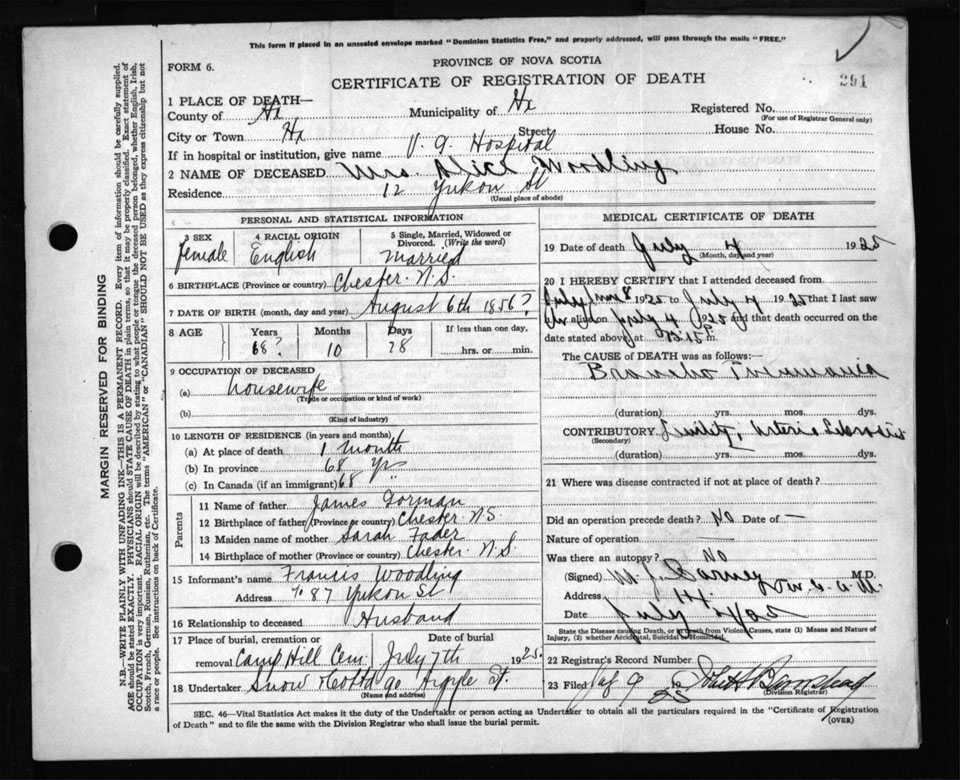 This form if placed in an unsealed envelope marked "Dominion Statistics Free," and properly addressed, will pass through the mails "FREE."
FORM 6.
PROVINCE OF NOVA SCOTIA
CERTIFICATE OF REGISTRATION OF DEATH
291
1 PLACE OF DEATH—
County of Hx Municipality of Hx Registered No.
(For use of Registrar General only)
City or Town Hx Street House No.
If in hospital or institution, give name V. G. Hospital
2 NAME OF DECEASED Mrs. Alice Woodling
Residence 12 Yukon St
(Usual place of abode)
PERSONAL AND STATISTICAL INFORMATION
3 SEX 4 RACIAL ORIGIN 5 Single, Married, Widowed or Divorced. (Write the word)
female English Married
6 BIRTHPLACE (Province or country) Chester N.S.
7 DATE OF BIRTH (month, day and year) August 6th 1856?
8 AGE Years Months Days If less than one day,
68? 10 28 hrs. or min.
9 OCCUPATION OF DECEASED
(a) housewife
(Trade or occupation or kind of work)
(b)
(Kind of industry)
10 LENGTH OF RESIDENCE (in years and months)
(a) At place of death 1 month
(b) In province 68 Yrs
(c) In Canada (if an immigrant) 68
Parents
11 Name of father James Gorman
12 Birthplace of father (Province or country) Chester N.S.
13 Maiden name of mother Sarah Fader
14 Birthplace of mother (Province or country) Chester. N.S.
15 Informant's name Francis Woodling
Address 87 Yukon St
16 Relationship to deceased Husband
17 Place of burial, cremation or removal Date of burial
Camp Hill Cem. July 7th 1925.
18 Undertaker Snow & Co Ltd 90 Argyle St.
(Name and address)
MEDICAL CERTIFICATE OF DEATH
19 Date of death July 4 1925
(Month, day and year)
20 I HEREBY CERTIFY that I attended deceased from
1925 to July 4 1925 that I last saw
alive on July 4 1925 and that death occurred on the
date stated above, at m.
The CAUSE OF DEATH was as follows:
Broncho Pneumonia
(duration) yrs. mos. dys.
CONTRIBUTORY Senility, Arterio Sclerosis
(Secondary)
(duration) yrs. mos. dys.
21 Where was disease contracted if not at place of death?
Did an operation precede death? No Date of —
Nature of operation —
Was there an autopsy? No
(Signed) M.D.
Address
Date July
State the Disease causing Death, or in death from Violent Causes, state (1) Means and Nature of Injury, (2) whether Accidental, Suicidal or Homicidal.
22 Registrar's Record Number
23 Filed
(Division Registrar)
SEC. 46—Vital Statistics Act makes it the duty of the Undertaker or person acting as Undertaker to obtain all the particulars required in the "Certificate of Registration
of Death" and to file the same with the Division Registrar who shall issue the burial permit.
(OVER)
MARGIN RESERVED FOR BINDING
N.B.—WRITE PLAINLY WITH UNFADING INK—THIS IS A PERMANENT RECORD. Every item of information should be carefully supplied.
AGE should be stated EXACTLY. PHYSICIANS should STATE CAUSE OF DEATH in plain terms, so that it may be properly classified. Exact statement of
OCCUPATION is very important. RACIAL ORIGIN will be described by stating to what people or tongue the deceased person belonged, whether English, Irish,
Scotch, French, German, Russian, Ruthenian, etc. The terms "AMERICAN" or "CANADIAN" SHOULD NOT BE USED as they express citizenship but not
a race or people. See instructions on back of Certificate.